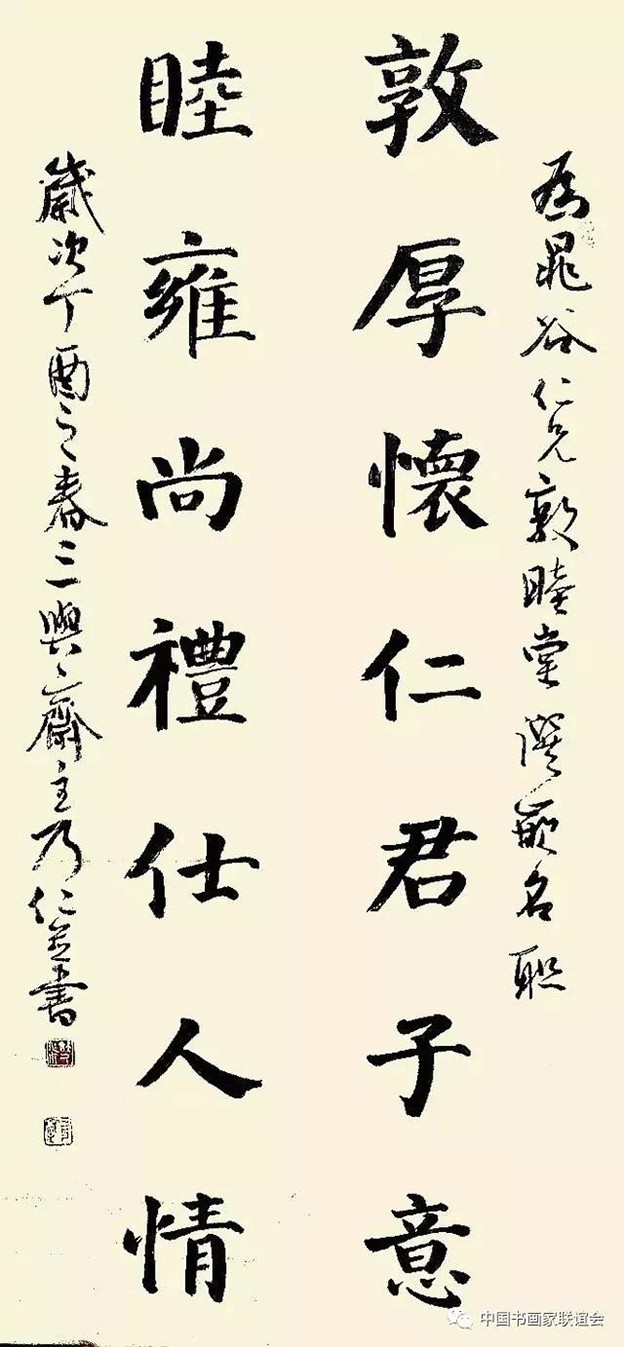 为晁谷仁兄敦睦堂撰嵌名联
敦厚懷仁君子意
睦雍尚禮仕人情
歲次丁酉之春三興齋主乃仁並書
中国书画家联谊会